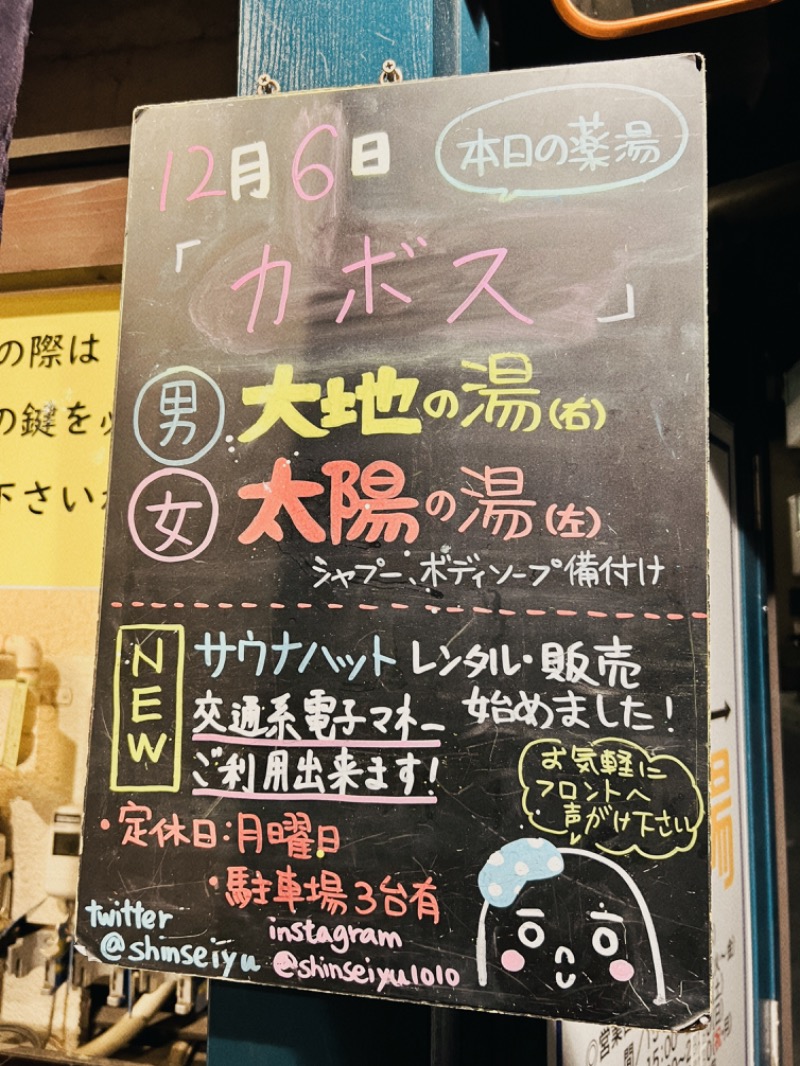 12月6日
本日の薬湯
「カボス」
男 大地の湯(右)
女 太陽の湯(左)
シャプー、ボディソープ備付け
NEW
サウナハット レンタル・販売
始めました!
交通系電子マネー
ご利用出来ます!
お気軽に
フロントへ
声がけ下さい
・定休日:月曜日
・駐車場3台有
twitter
@shinseiyu
instagram
@shinseiyu1010
の際は
の鍵を必
下さい
湯
◎営業
間
15:00